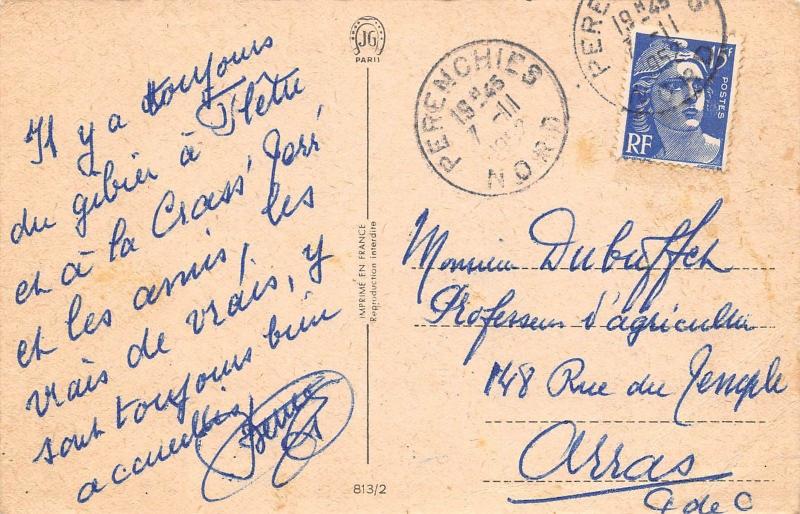 Il y a toujours
du gibier à Flêtre
et à la Crass' Terr'
et les amis, les
vrais de vrais, y
sont toujours bien
accueillis
JG
PARIS
IMPRIMÉ EN FRANCE
Reproduction interdite
813/2
PERENCHIES
19H45
7 -11
NORD
PERE
19H45
-11
15F
POSTES
RF
Monsieur Dubuffet
Professeur d'agriculture
148 Rue du Temple
Arras
P de C